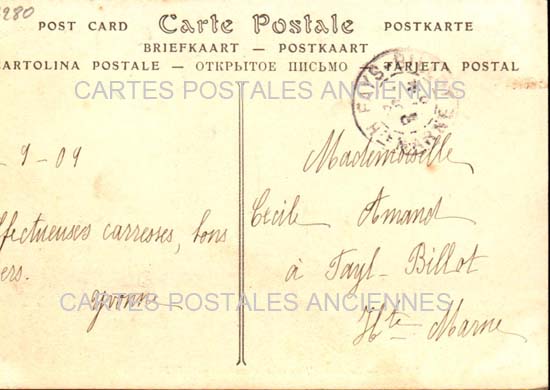 280
POST CARD Carte Postale POSTKARTE
BRIEFKAART — POSTKAART
CARTOLINA POSTALE — ОТКРЫТОЕ ПИСЬМО — TARJETA POSTAL
CARTES POSTALES ANCIENNES
FAYS-BILLOT
Hte MARNE
9-09
ffectueuses carresses, bons
ers.
Yvonne
Mademoiselle
Cecile Amand
à Fayl-Billot
Hte Marne
CARTES POSTALES ANCIENNES